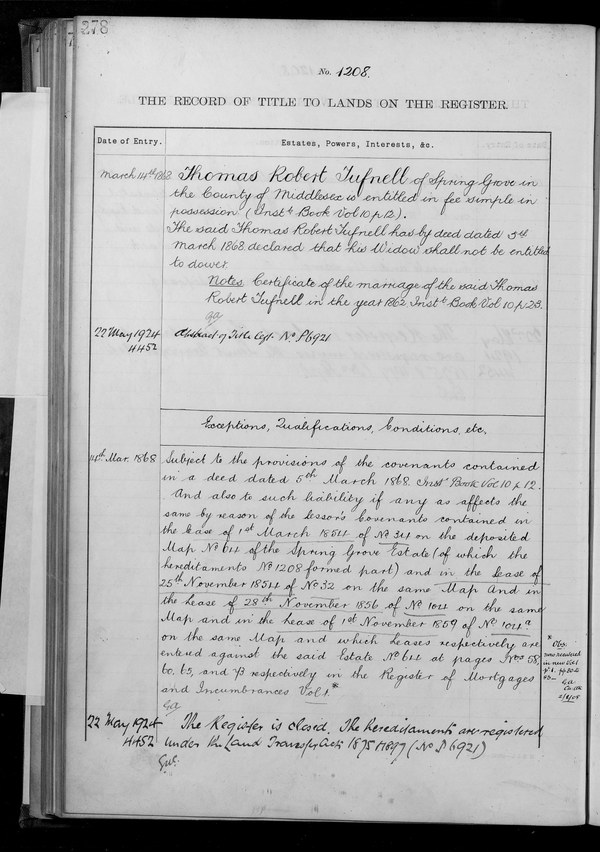 278
No. 1208.
THE RECORD OF TITLE TO LANDS ON THE REGISTER.
Date of Entry. Estates, Powers, Interests, &c.
March 14th 1868 Thomas Robert Tufnell of Spring Grove in
the County of Middlesex is entitled in fee simple in
possession (Instt Book Vol 10 p 12).
The said Thomas Robert Tufnell has by deed dated 5th
March 1868 declared that his Widow shall not be entitled
to dower.
Notes Certificate of the marriage of the said Thomas
Robert Tufnell in the year 1862. Instt Book Vol 10 p. 23.
22 May 1924 Abstract of Title Regt. No. P6921
4452
Exceptions, Qualifications, Conditions, etc.
14th Mar. 1868 Subject to the provisions of the covenants contained
in a deed dated 5th March 1868. Instt Book Vol 10 p. 12.
And also to such liability if any as affects the
same by reason of the lessor's Covenants contained in
the lease of 1st March 1854 of No 34 on the deposited
Map No 64 of the Spring Grove Estate (of which the
hereditaments No 1208 formed part) and in the lease of
25th November 1854 of No 32 on the same Map And in
the lease of 28th November 1856 of No 104 on the same
Map and in the lease of 1st November 1859 of No 104a
on the same Map and which leases respectively are
entered against the said Estate No 64 at pages Nos 58,
60, 65, and 73 respectively in the Register of Mortgages
and Incumbrances Vol 1.*
* Obs.
now entered
in new Vol 1
22 May 1924 The Register is closed. The hereditaments are registered
4452 under the Land Transfer Acts 1875 & 1897 (No P6921)